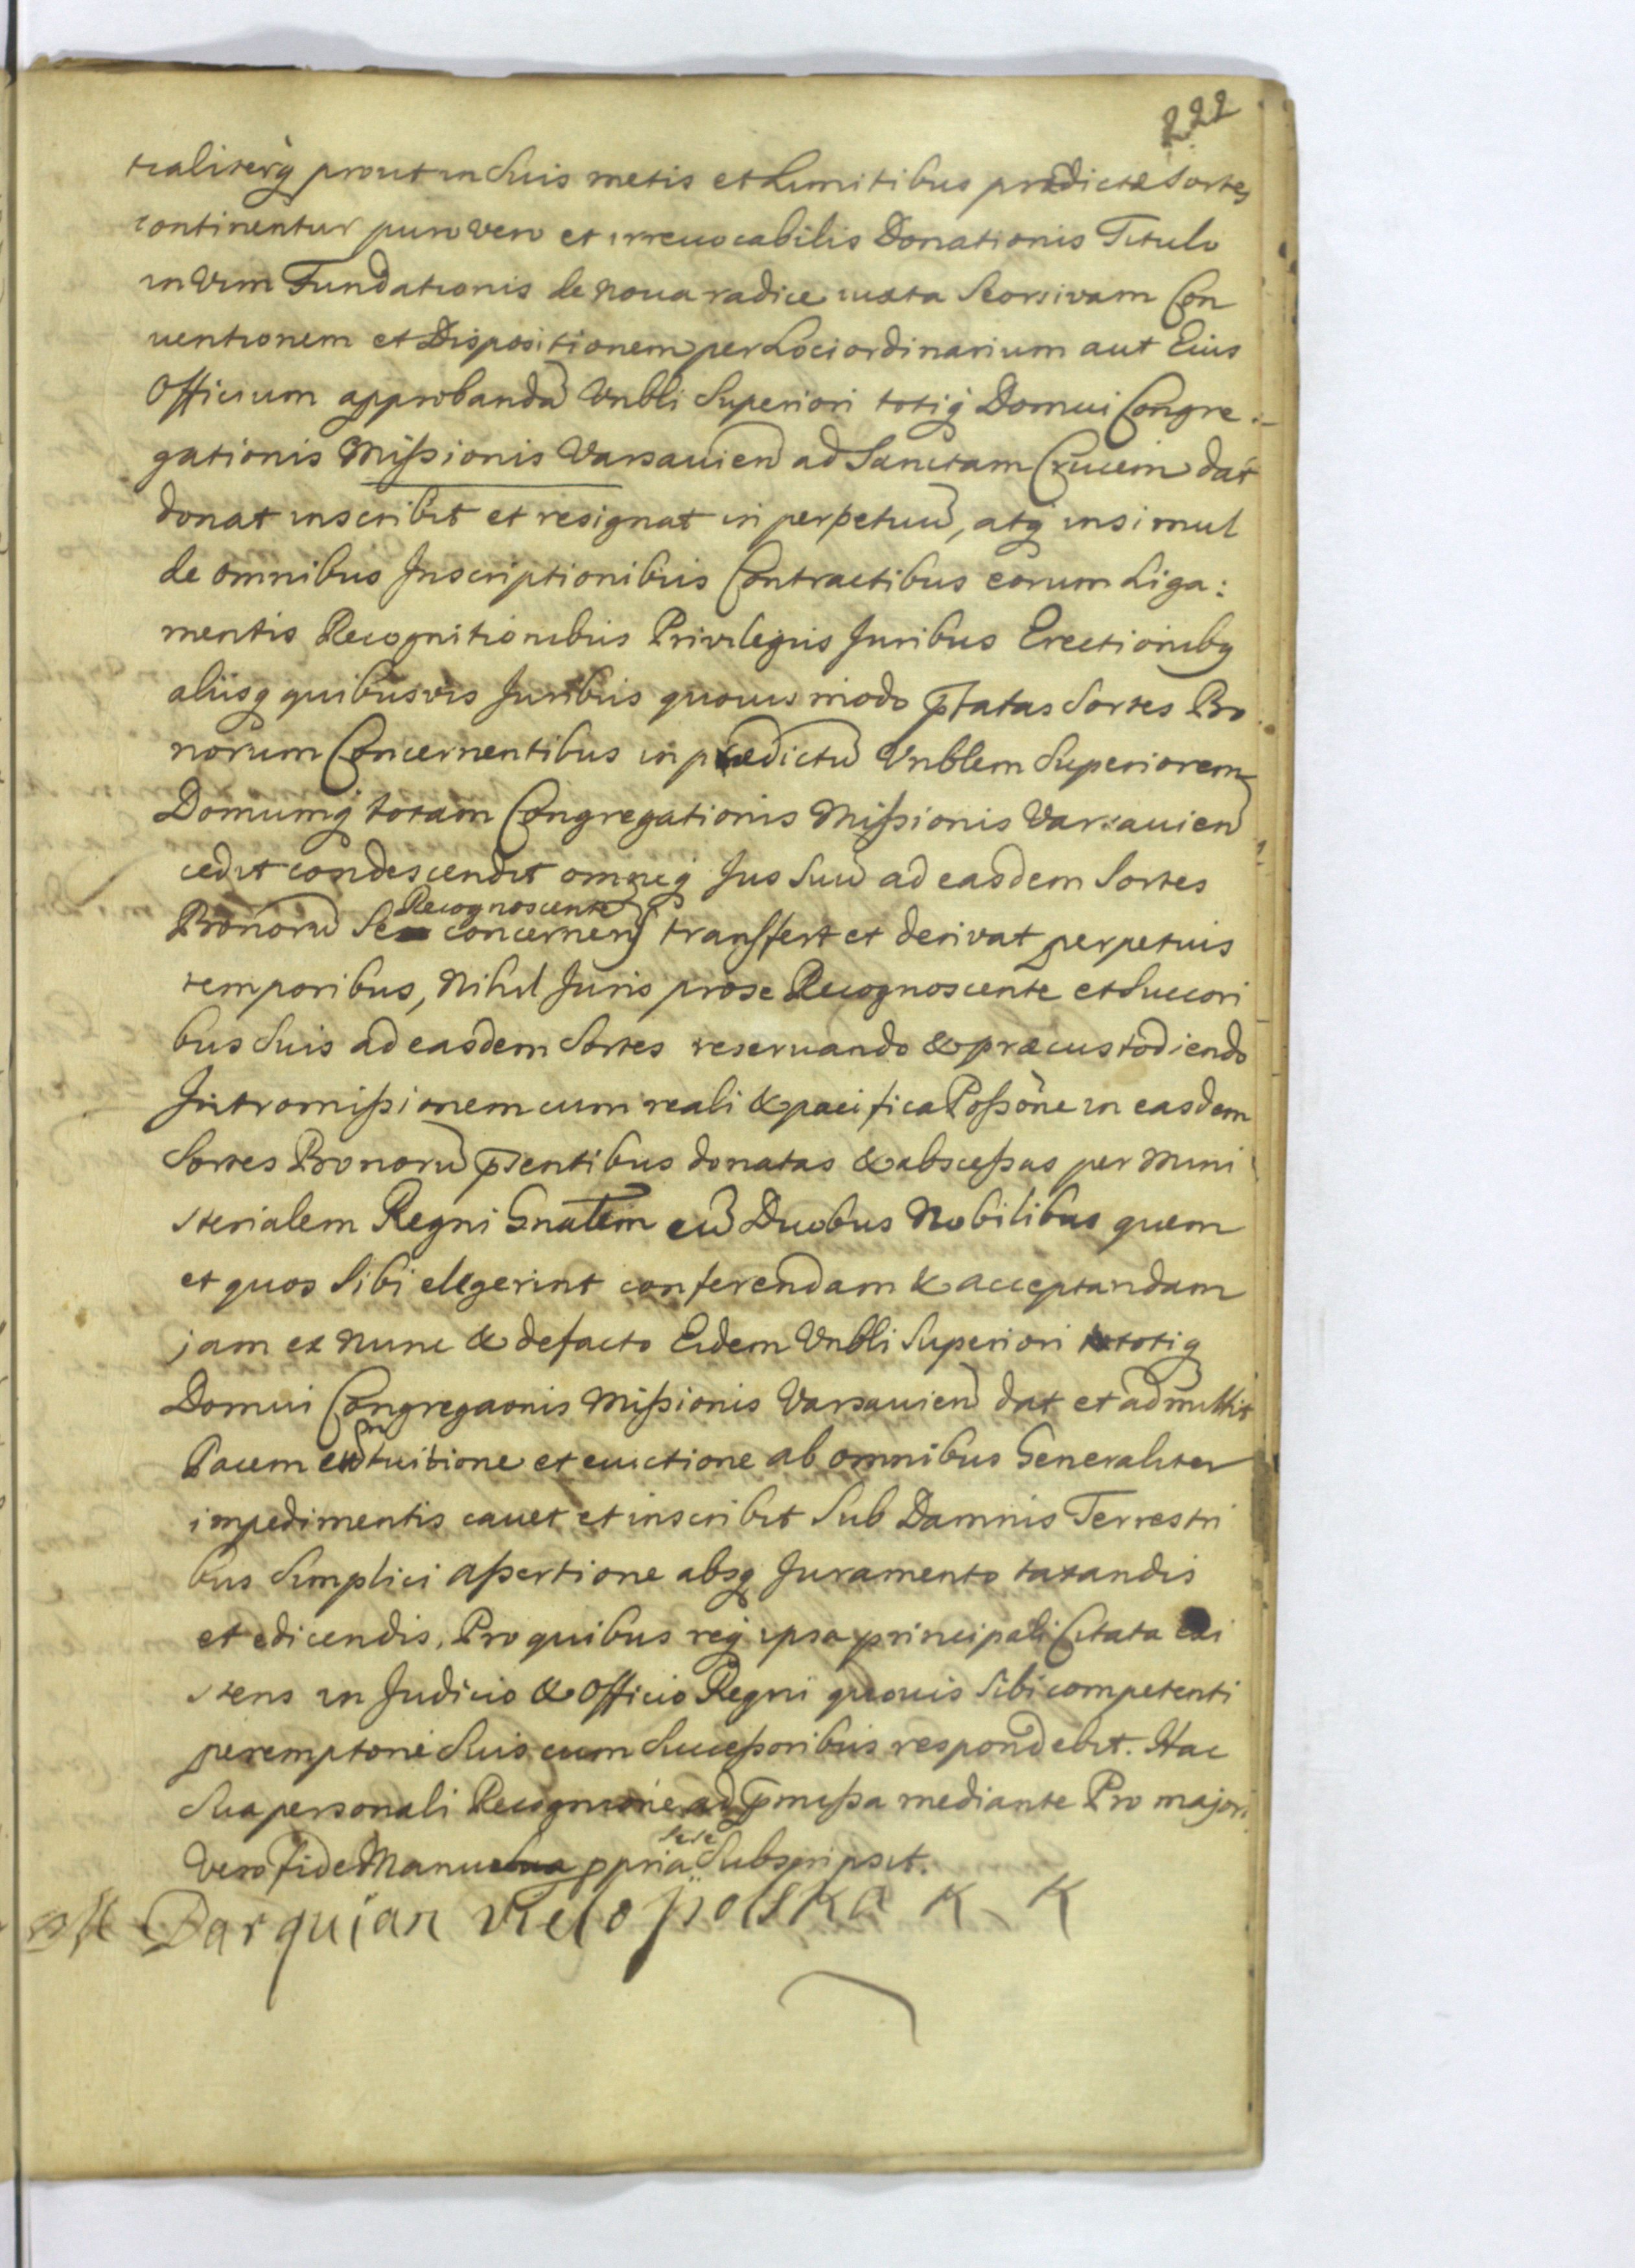 222
tualiterq prout in Suis metis et Limitibus prædictæ Sortes
continentur puro vero et irreuocabilis Donationis Titulo
in Vim Fundationis de noua radice iuxta Seorsivam Con
uentionem et Dispositionem per Loci ordinarium aut Eius
Officium approbandã Vnbli Superiori totiq Domui Congre:
gationis Mißionis Varsauien ad Sanctam Crucem dat
donat inscribit et resignat in perpetuũ, atq insimul
de omnibus Inscriptionibus Contractibus eorum Liga:
mentis Recognitionibus Privilegiis Juribus Erectionibq
aliisq quibusvis Juribus quouis modo ptatas Sortes Bo
norum Concernentibus in prædictũ Vnblem Superiorem
Domumq totam Congregationis Mißionis Varsauien
cedit condescendit omneq Jus Suũ ad easdem Sortes
Bonorũ Se Recognoscente concernens transfert et derivat perpetuis
temporibus, Nihil Juris pro se Recognoscente et Succori
bus Suis ad easdem Sortes reseruando & præcustodiendo
Intromißionem cum reali & pacifica Poßone in easdem
Sortes Bonorũ pñtibus donatas & absceßas per Mini
sterialem Regni Gnalem cũ Duobus Nobilibus quem
et quos Sibi elegerint conferendam & acceptandam
jam ex nunc & de facto Eidem Vnbli Superiori totiq
Domui Congregaonis Mißionis Varsauien dat et admittit
Pacem cũ tuitione et euictione ab omnibus Generaliter
impedimentis cauet et inscribit Sub Damnis Terrestri
bus Simplici aßertione absq Juramento taxandis
et edicendis. Pro quibus req ipsa principali Citata exi
stens in Judicio & Officio Regni quouis Sibi competenti
peremptorie Suis cum Succeßoribus respondebit. Hac
Sua personali Recognicione ad pmißa mediante Pro majori
Vero fide Manu sua ppria sese Subscripsit.
Darquian Vielopolska K K